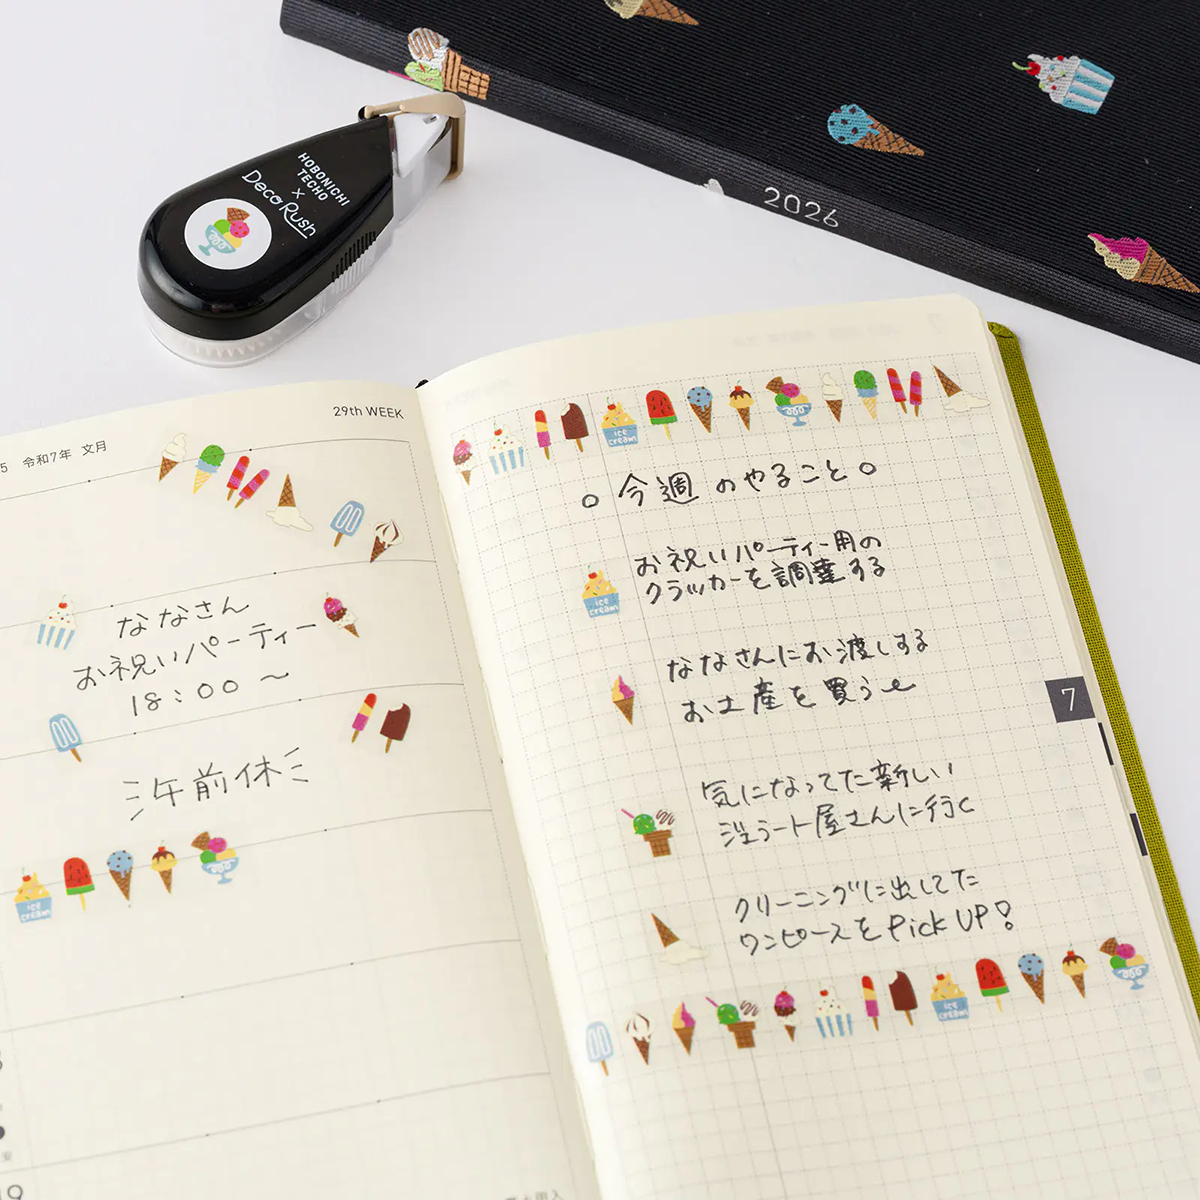 HOBONICHI
TECHO
×
DecoRush
2026
29th WEEK
5 令和7年 文月
なななさん
お祝いパーティー
18:00〜
午前休
ice
cream
ice
cream
今週のやること
ice
cream
お祝いパーティー用の
クラッカーを調達する
ななさんにお渡しする
お土産を買う
気になってた新しい
ジェラート屋さんに行く
クリーニングに出してた
ワンピースをPick UP!
ice
cream
7